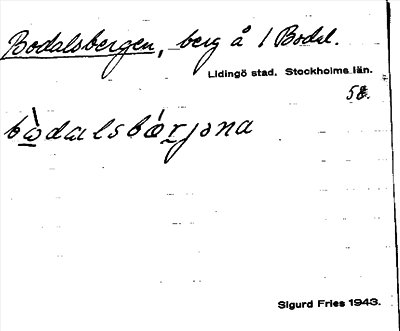 Bodalsbergen, berg å 1 Bodal.
Lidingö stad. Stockholms län.
bò̲dalsbǽr̲jəna
Sigurd Fries 1943.